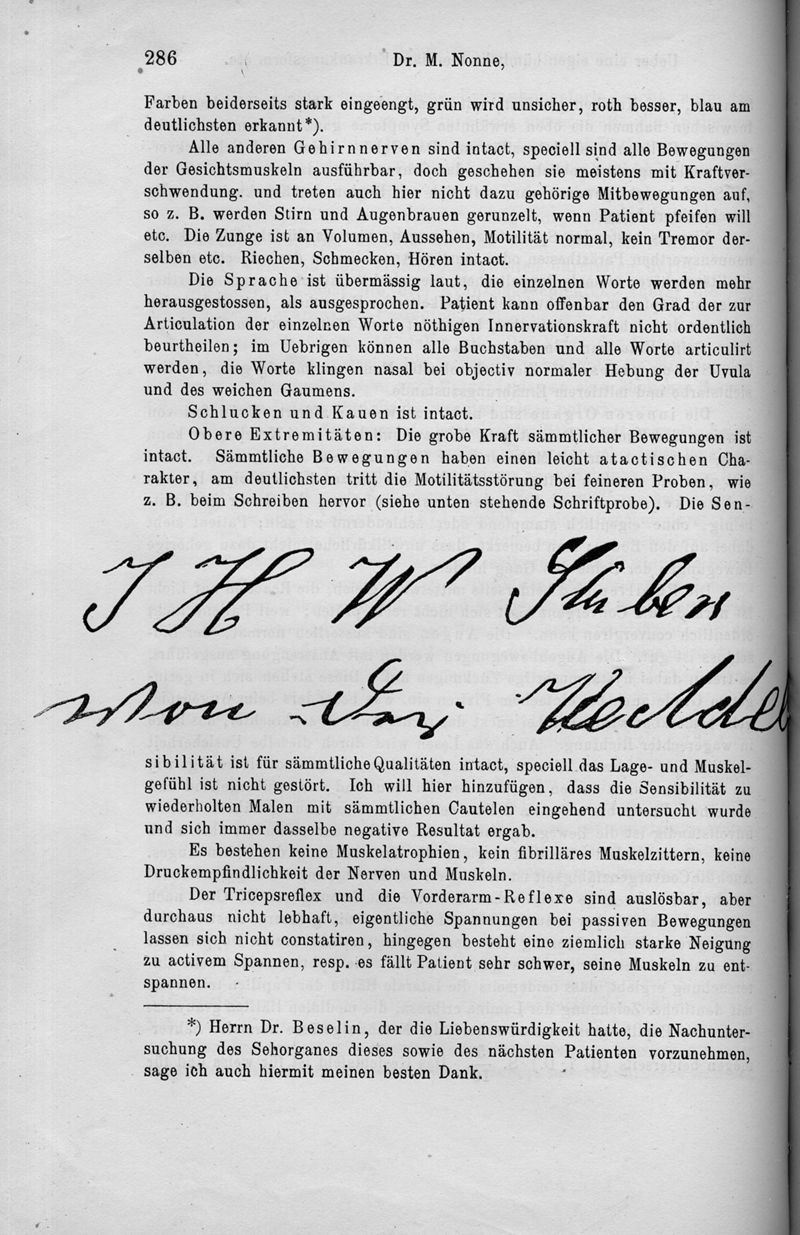 286 Dr. M. Nonne,
Farben beiderseits stark eingeengt, grün wird unsicher, roth besser, blau am
deutlichsten erkannt*).
Alle anderen Gehirnnerven sind intact, speciell sind alle Bewegungen
der Gesichtsmuskeln ausführbar, doch geschehen sie meistens mit Kraftver-
schwendung. und treten auch hier nicht dazu gehörige Mitbewegungen auf,
so z. B. werden Stirn und Augenbrauen gerunzelt, wenn Patient pfeifen will
etc. Die Zunge ist an Volumen, Aussehen, Motilität normal, kein Tremor der-
selben etc. Riechen, Schmecken, Hören intact.
Die Sprache ist übermässig laut, die einzelnen Worte werden mehr
herausgestossen, als ausgesprochen. Patient kann offenbar den Grad der zur
Articulation der einzelnen Worte nöthigen Innervationskraft nicht ordentlich
beurtheilen; im Uebrigen können alle Buchstaben und alle Worte articulirt
werden, die Worte klingen nasal bei objectiv normaler Hebung der Uvula
und des weichen Gaumens.
Schlucken und Kauen ist intact.
Obere Extremitäten: Die grobe Kraft sämmtlicher Bewegungen ist
intact. Sämmtliche Bewegungen haben einen leicht atactischen Cha-
rakter, am deutlichsten tritt die Motilitätsstörung bei feineren Proben, wie
z. B. beim Schreiben hervor (siehe unten stehende Schriftprobe). Die Sen-
J H W Stüben
von der
sibilität ist für sämmtliche Qualitäten intact, speciell das Lage- und Muskel-
gefühl ist nicht gestört. Ich will hier hinzufügen, dass die Sensibilität zu
wiederholten Malen mit sämmtlichen Cautelen eingehend untersucht wurde
und sich immer dasselbe negative Resultat ergab.
Es bestehen keine Muskelatrophien, kein fibrilläres Muskelzittern, keine
Druckempfindlichkeit der Nerven und Muskeln.
Der Tricepsreflex und die Vorderarm-Reflexe sind auslösbar, aber
durchaus nicht lebhaft, eigentliche Spannungen bei passiven Bewegungen
lassen sich nicht constatiren, hingegen besteht eine ziemlich starke Neigung
zu activem Spannen, resp. es fällt Patient sehr schwer, seine Muskeln zu ent-
spannen.
*) Herrn Dr. Beselin, der die Liebenswürdigkeit hatte, die Nachunter-
suchung des Sehorganes dieses sowie des nächsten Patienten vorzunehmen,
sage ich auch hiermit meinen besten Dank.